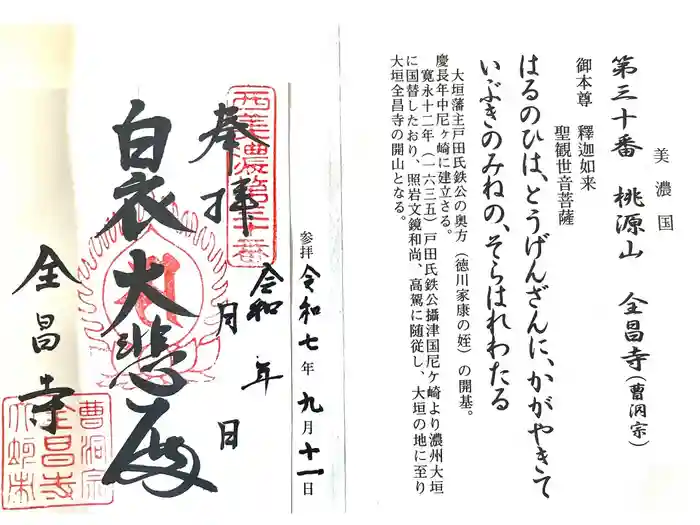 美濃国
第三十番 桃源山 全昌寺(曹洞宗)
御本尊 釋迦如来
聖観世音菩薩
はるのひは、とうげんざんに、かがやきて
いぶきのみねの、そらはれわたる
大垣藩主戸田氏鉄公の奥方(徳川家康の姪)の開基。
慶長年中尼ヶ崎に建立さる。
寛永十二年(一六三五)戸田氏鉄公攝津国尼ヶ崎より濃州大垣
に国替したおり、照岩文鏡和尚、高駕に随従し、大垣の地に至り
大垣全昌寺の開山となる。
参拝 令和七年九月十一日
奉拝
令和 年 月 日
西美濃第三十番
白衣大悲殿
全昌寺
曹洞宗
全昌寺